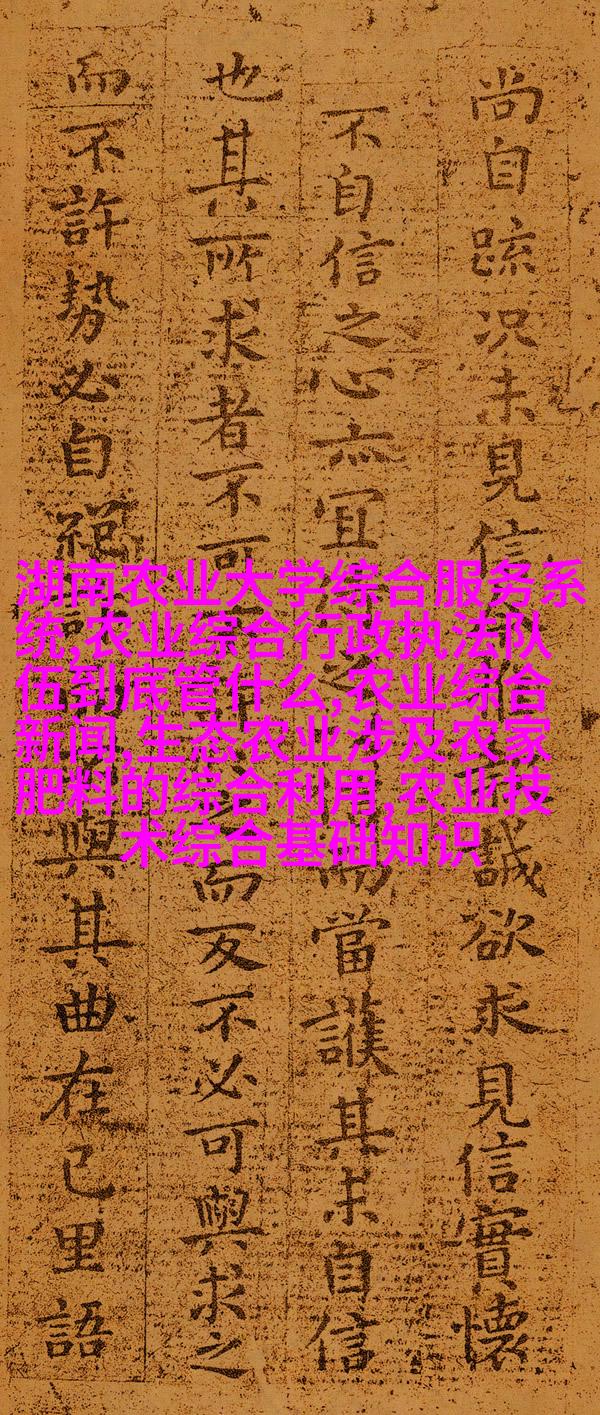 尚自疎况未見信誠欲求見信實懷
不自信之心亦宜而當護其未自信
也其所求者不可而反不必可與求之
而不許勢必自絕與其曲在已里語
湖南农业大学综合服务系
统,农业综合行政执法队
伍到底管什么,农业综合
新闻,生态农业涉及农家
肥料的综合利用,农业技
术综合基础知识